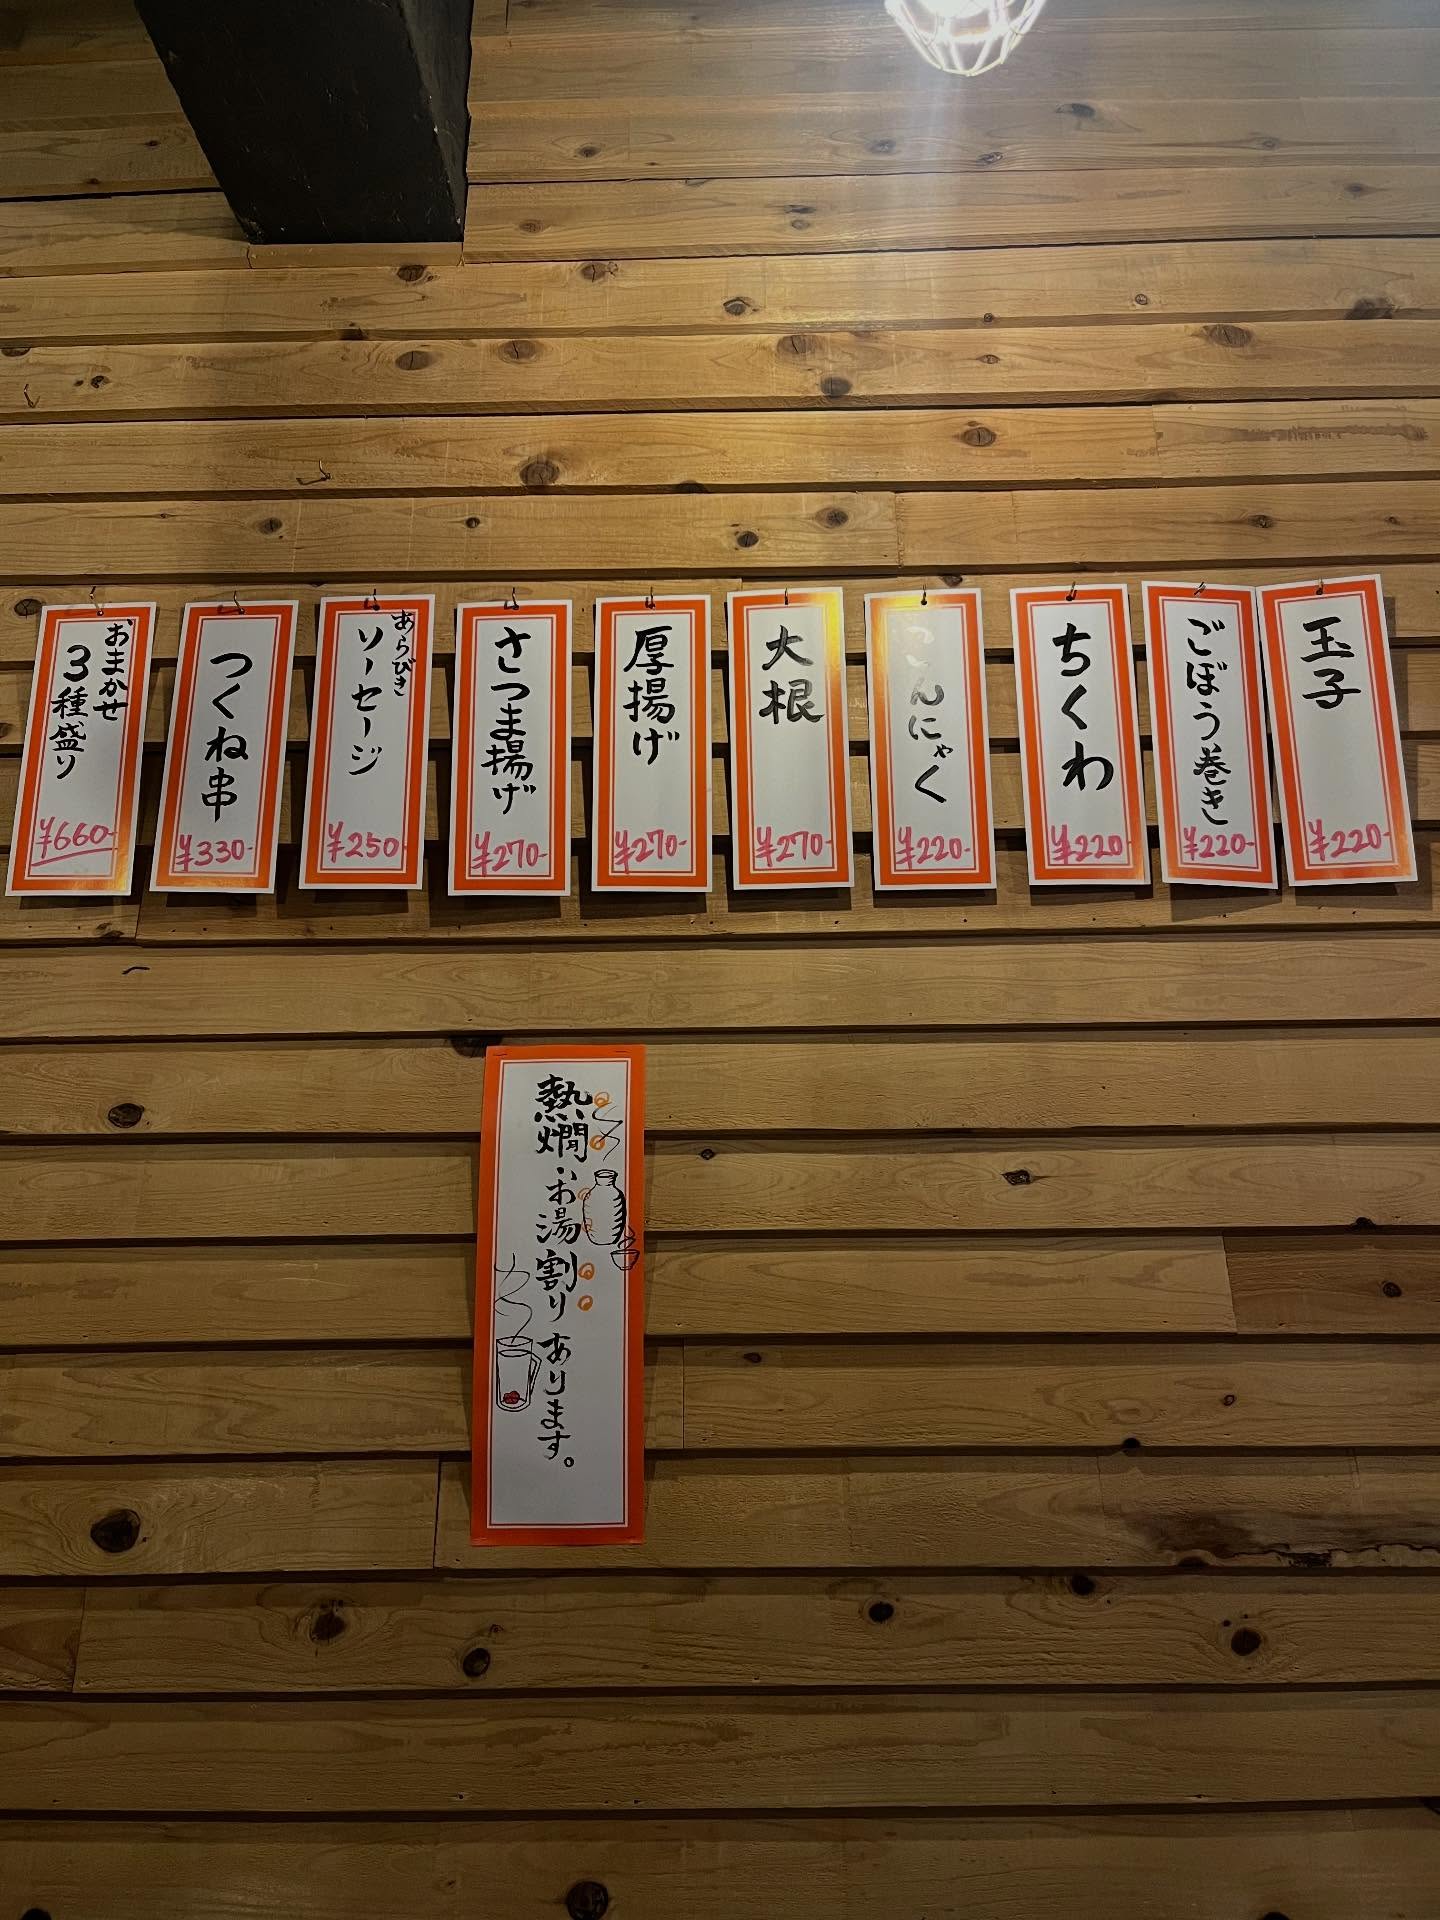 玉子
¥220-
ごぼう巻き
¥220-
ちくわ
¥220-
こんにゃく
¥220-
大根
¥270-
厚揚げ
¥270-
さつま揚げ
¥270-
あらびき
ソーセージ
¥250-
つくね串
¥330-
おまかせ
3種盛り
¥660-
熱燗、お湯割りあります。